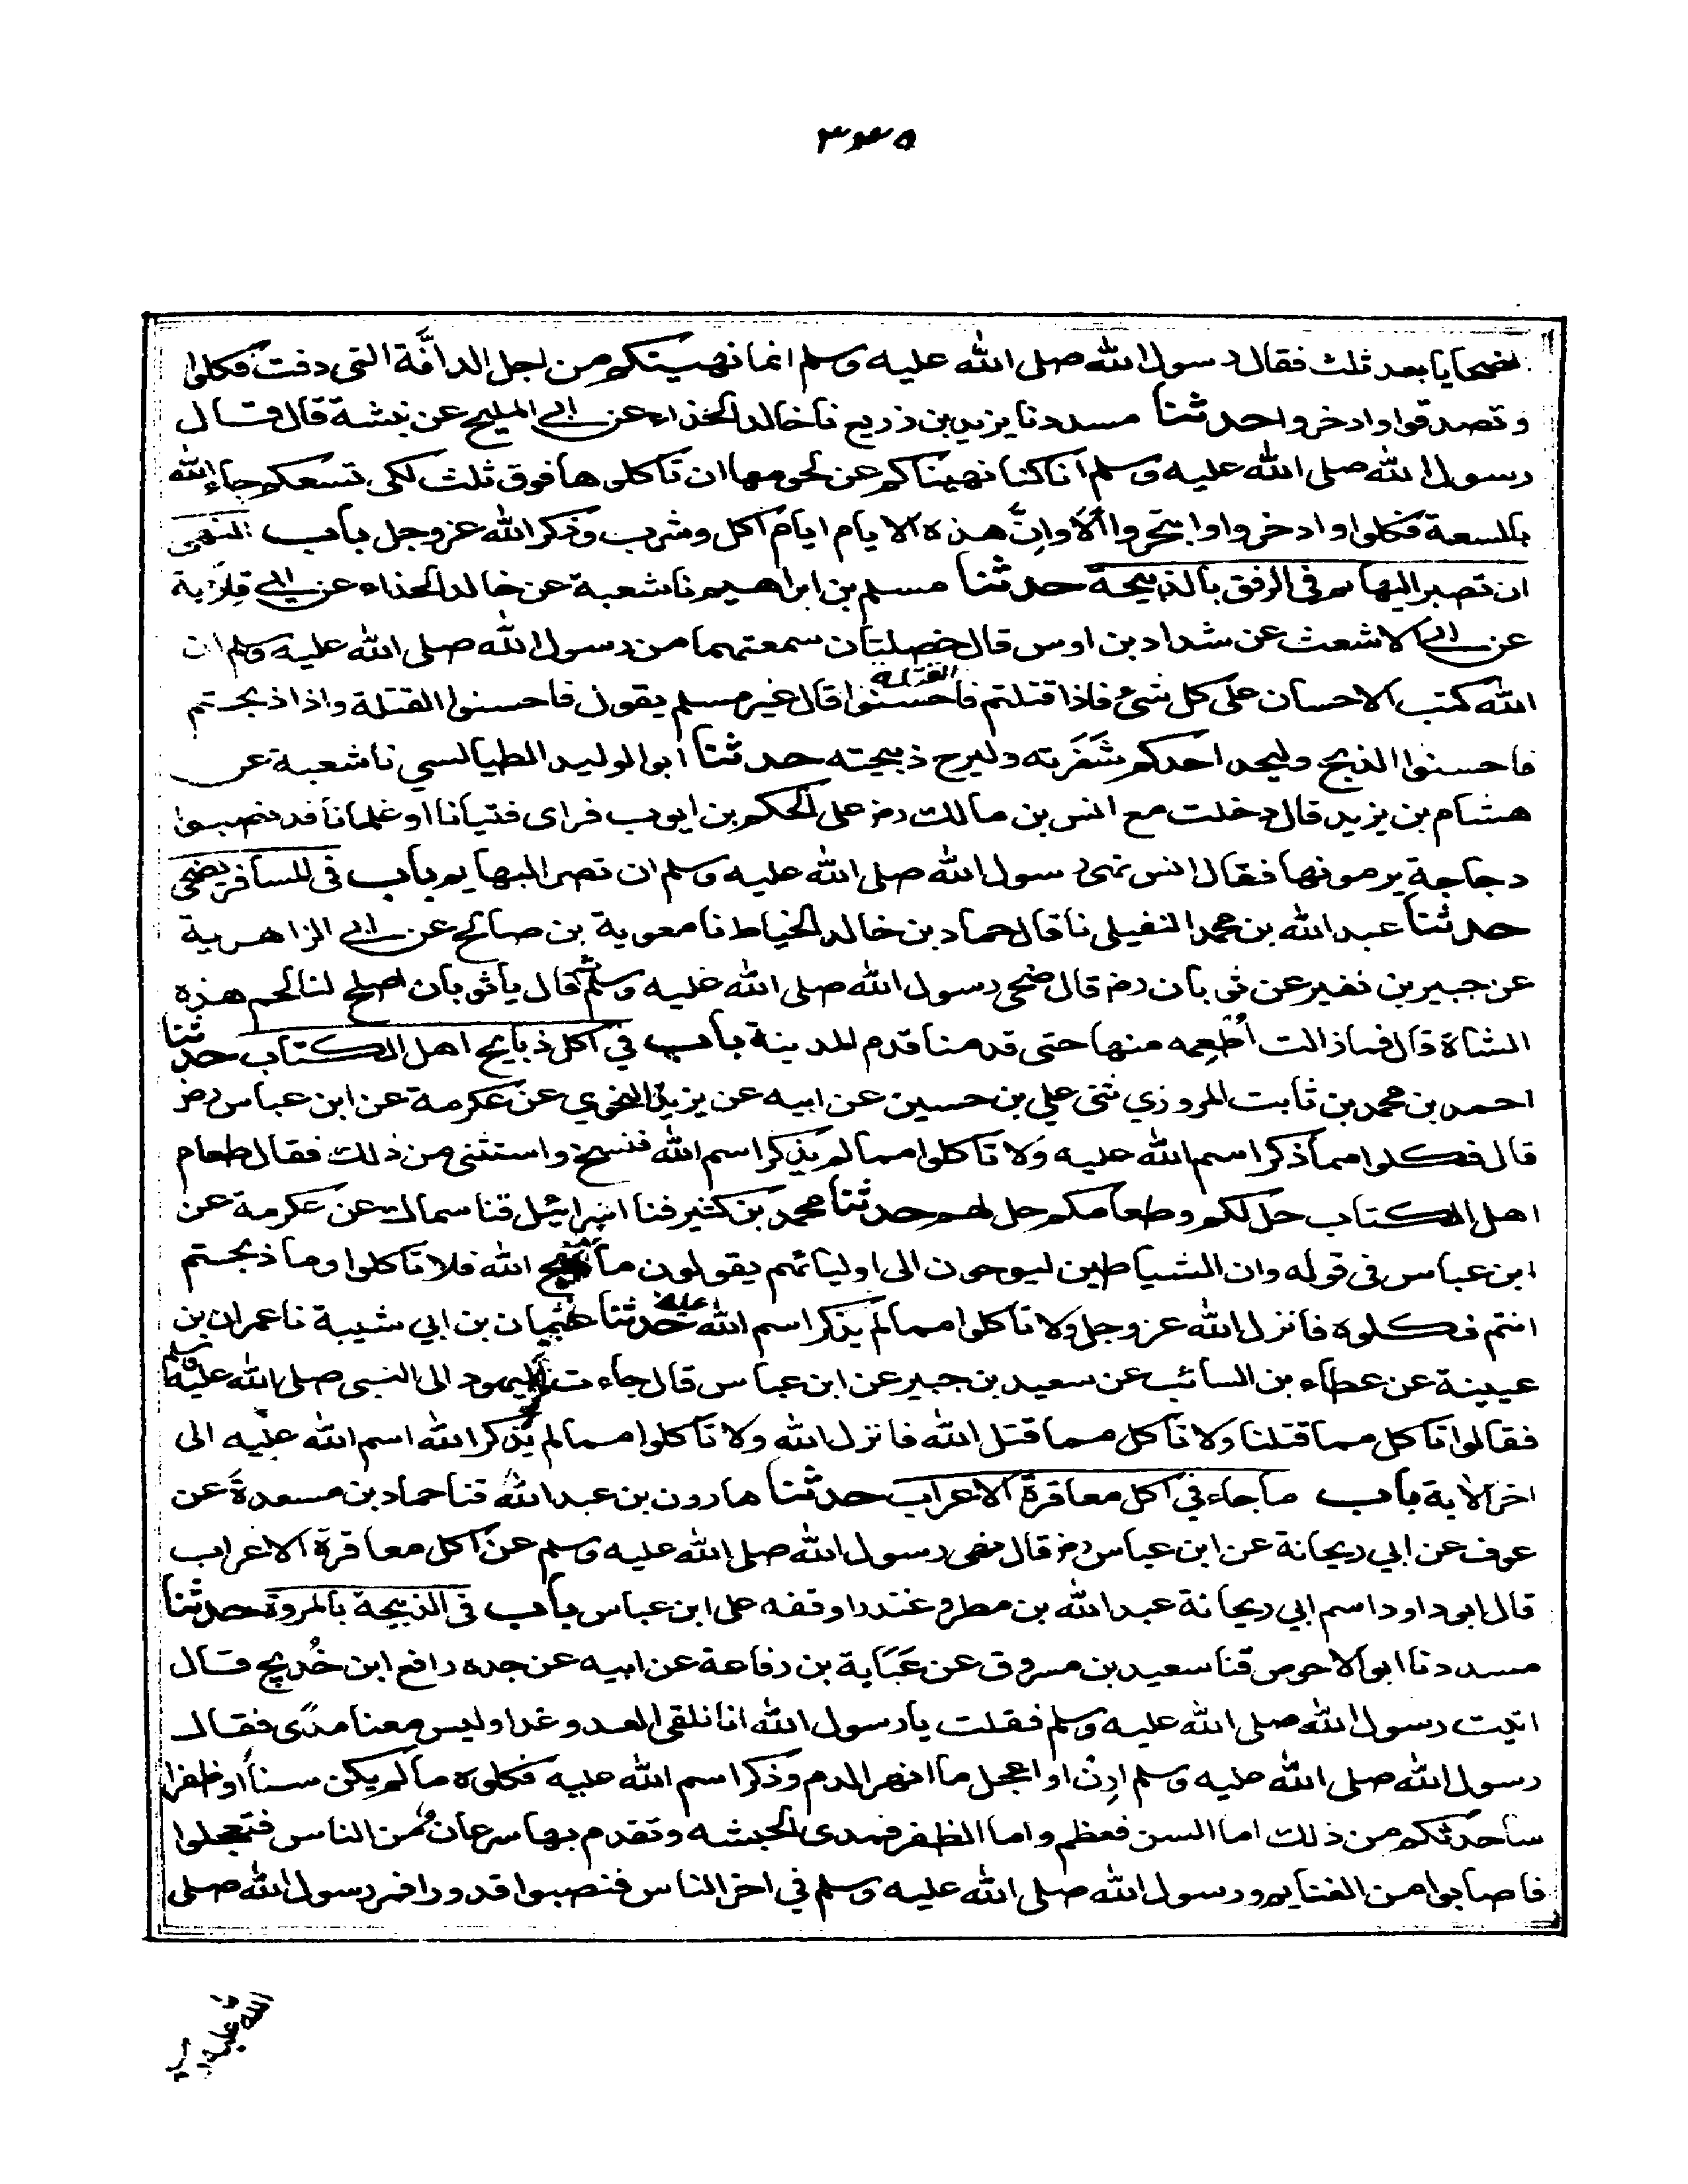 ٣٤٥
الضحايا بعد ثلث فقال رسول الله صلى الله عليه وسلم انما نهيتكم من اجل الدافَّة التى دفت فكلوا
وتصدقوا وادخروا حدثنا مسدد نا يزيد بن زريع نا خالد الحذاء عن ابي المليح عن نبشة قال قال
رسول الله صلى الله عليه وسلم انا كنا نهيناكم عن لحومها ان تاكلوها فوق ثلث لكى تسعكم جاء الله
بالسعة فكلوا وادخروا وابتجروا ألا وانّ هذه الايام ايام اكل وشرب وذكر الله عز وجل باب النهى
ان تصبر البهائم فى الرفق بالذبيحة حدثنا مسلم بن ابراهيم نا شعبة عن خالد الحذاء عن ابي قلابة
عن ابي الاشعث عن شداد بن اوس قال خصلتان سمعتهما من رسول الله صلى الله عليه وسلم ان
الله كتب الاحسان على كل شئ فاذا قتلتم فاحسنوا القتلة قال غير مسلم يقول فاحسنوا القتلة واذا ذبحتم
فاحسنوا الذبح وليحد احدكم شَفرَته وليرح ذبيحته حدثنا ابو الوليد الطيالسي نا شعبة عن
هشام بن يزيد قال دخلت مع انس بن مالك رض على الحكم بن ايوب فراى فتيانا او غلمانا قد نصبوا
دجاجة يرمونها فقال انس نهى رسول الله صلى الله عليه وسلم ان تصبر البهايم باب فى المسافر يضحى
حدثنا عبد الله بن محمد النفيلى نا قال حماد بن خالد الخياط نا معوية بن صالح عن ابي الزاهرية
عن جبير بن نفير عن ثوبان رض قال ضحى رسول الله صلى الله عليه وسلم ثم قال يا ثوبان اصلح لنا لحم هذه
الشاة قال فما زالت اُطعِمه منها حتى قدمنا قدم المدينة باب في اكل ذبايح اهل الكتاب حدثنا
احمد بن محمد بن ثابت المروزي ثنى علي بن حسين عن ابيه عن يزيد النحوي عن عكرمة عن ابن عباس رض
قال فكلوا مما ذكر اسم الله عليه ولا تاكلوا مما لم يذكر اسم الله فنسخ واستثنى من ذلك فقال طعام
اهل الكتاب حل لكم وطعامكم حل لهم حدثنا محمد بن كثير فنا اسرائيل قنا سماك عن عكرمة عن
ابن عباس فى قوله وان الشياطين ليوحون الى اوليائهم يقولون ما ذبح الله فلا تاكلوا وما ذبحتم
انتم فكلوه فانزل الله عز وجل ولا تاكلوا مما لم يذكر اسم الله عليه حدثنا عثمان بن ابي شيبة نا عمران بن
عيينة عن عطاء بن السائب عن سعيد بن جبير عن ابن عباس قال جاءت اليهود الى النبى صلى الله عليه وسلم
فقالوا ناكل مما قتلنا ولا ناكل مما قتل الله فانزل الله ولا تاكلوا مما لم يذكر الله اسم الله عليه الى
اخر الاية باب ما جاء في اكل معاقرة الاعراب حدثنا هارون بن عبد الله قنا حماد بن مسعدة عن
عوف عن ابي ريحانة عن ابن عباس رض قال نهى رسول الله صلى الله عليه وسلم عن اكل معاقرة الاعراب
قال ابو داود اسم ابي ريحانة عبد الله بن مطر و غندر اوقفه على ابن عباس باب فى الذبيحة بالمروة حدثنا
مسدد نا ابو الاحوص قنا سعيد بن مسروق عن عَبَاية بن رفاعة عن ابيه عن جده رافع ابن خُديج قال
اتيت رسول الله صلى الله عليه وسلم فقلت يا رسول الله انا نلقى العدو غدا وليس معنا مدًى فقال
رسول الله صلى الله عليه وسلم ارِنْ او اعجل ما انهر الدم وذكر اسم الله عليه فكلوه ما لم يكن سناً او ظفرا
ساحدثكم من ذلك اما السن فعظم واما الظفر فمدى الحبشه وتقدم بها سرعان من الناس فتعجلوا
فاصابوا من الغنايم ورسول الله صلى الله عليه وسلم في اخر الناس فنصبوا قدورا فمر رسول الله صلى
الله عليه